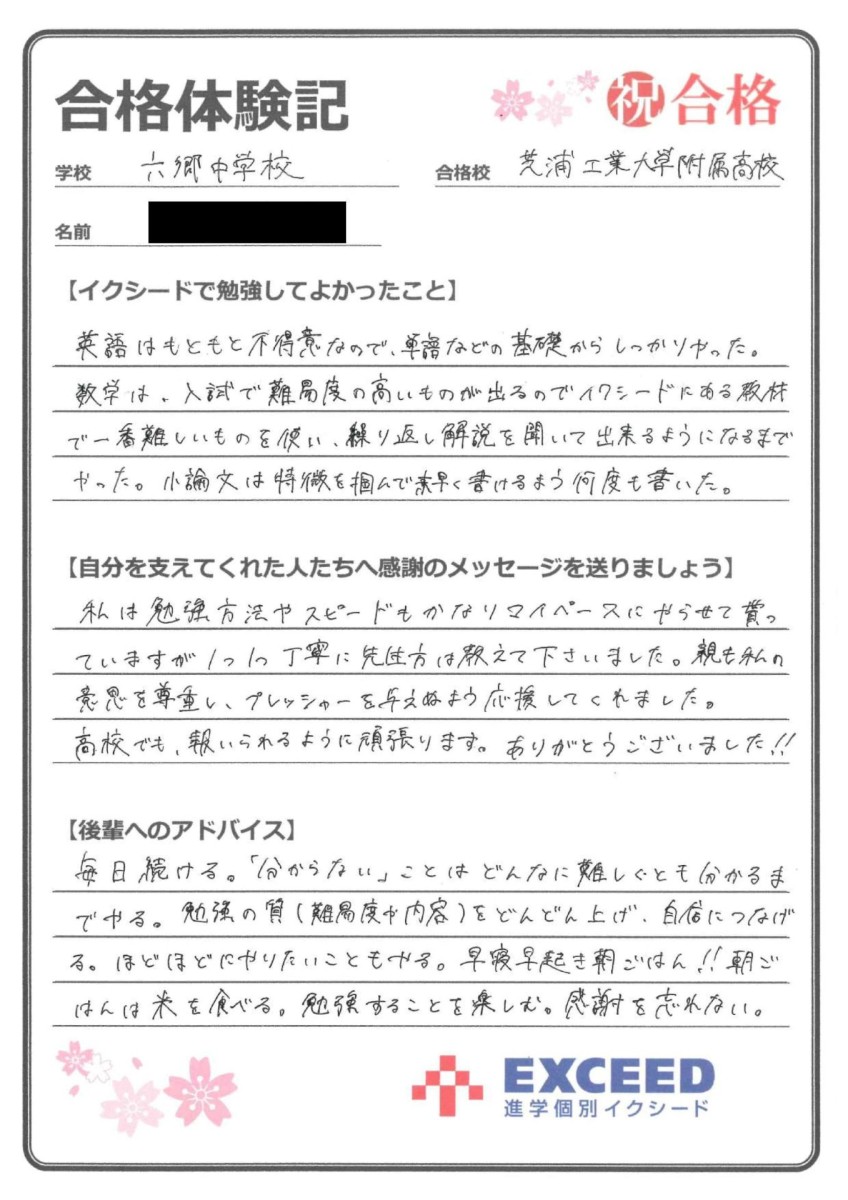 合格体験記
祝 合格
学校 六郷中学校
合格校 芝浦工業大学附属高校
名前
【イクシードで勉強してよかったこと】
英語はもともと不得意なので、単語などの基礎からしっかりやった。
数学は、入試で難易度の高いものが出るのでイクシードにある教材
で一番難しいものを使い、繰り返し解説を聞いて出来るようになるまで
やった。小論文は特徴を掴んで素早く書けるよう何度も書いた。
【自分を支えてくれた人たちへ感謝のメッセージを送りましょう】
私は勉強方法やスピードもかなりマイペースにやらせて貰っ
ていますが1つ1つ丁寧に先生方は教えて下さいました。親も私の
意思を尊重し、プレッシャーを与えぬよう応援してくれました。
高校でも、報いられるように頑張ります。ありがとうございました!!
【後輩へのアドバイス】
毎日続ける。「分からない」ことはどんなに難しくとも分かるま
でやる。勉強の質(難易度や内容)をどんどん上げ、自信につなげ
る。ほどほどにやりたいこともやる。早寝早起き朝ごはん!!朝ご
はんは米を食べる。勉強することを楽しむ。感謝を忘れない。
EXCEED
進学個別イクシード